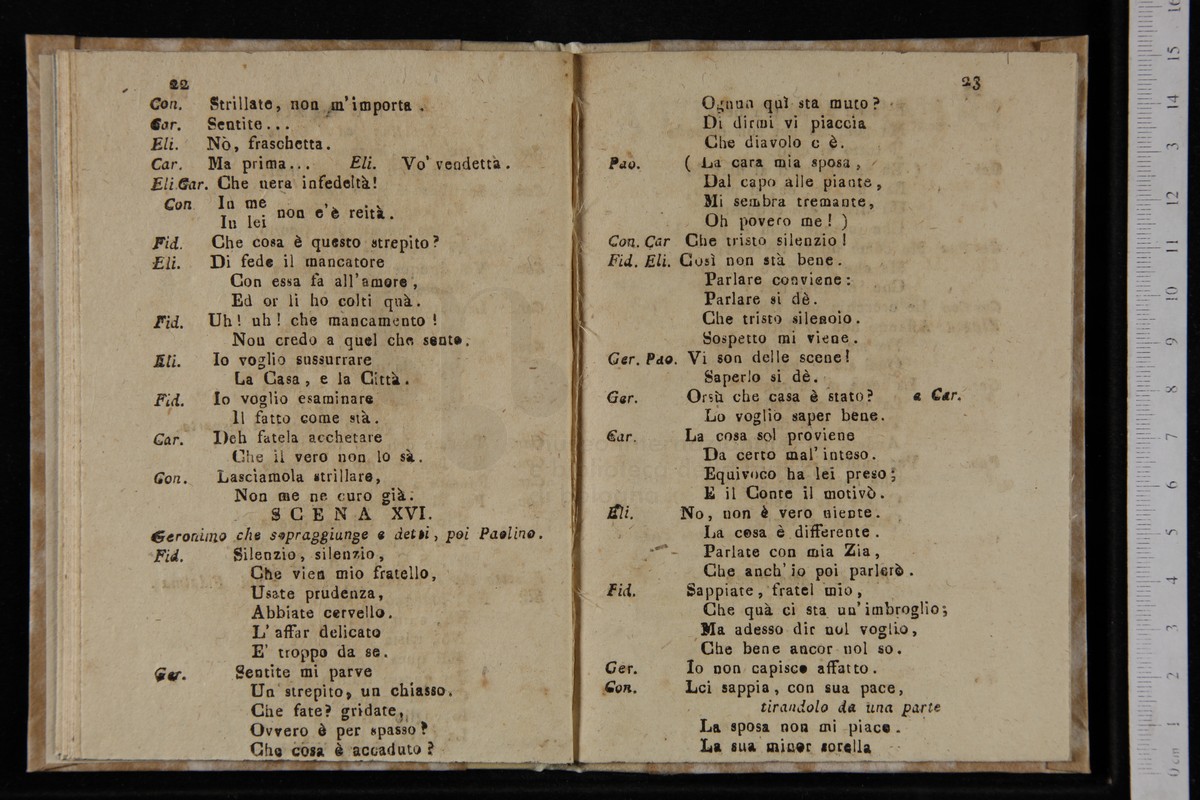 22
Con. Strillate, non m'importa .
Car. Sentite...
Eli. Nò, fraschetta.
Car. Ma prima... Eli. Vo' vendetta.
Eli.Car. Che nera infedeltà!
Con In me
In lei non c'è reità.
Fid. Che cosa è questo strepito?
Eli. Di fede il mancatore
Con essa fa all'amore,
Ed or li hò colti quà.
Fid. Uh! uh! che mancamento !
Non credo a quel che sento.
Eli. Io voglio sussurrare
La Casa, e la Città.
Fid. Io voglio esaminare
Il fatto come stà.
Car. Deh fatela acchetare
Che il vero non lo sà.
Con. Lasciamola strillare,
Non me ne curo già.
SCENA XVI.
Geronimo che sopraggiunge e detti, poi Paolino.
Fid. Silenzio, silenzio,
Che vien mio fratello,
Usate prudenza,
Abbiate cervello.
L' affar delicato
E' troppo da se.
Ger. Sentite mi parve
Un strepito, un chiasso.
Che fate? gridate,
Ovvero è per spasso?
Che cosa è accaduto?
23
Ognun quì sta muto?
Di dirmi vi piaccia
Che diavolo c è.
Pao. ( La cara mia sposa,
Dal capo alle piante,
Mi sembra tremante,
Oh povero me! )
Con. Car Che tristo silenzio!
Fid. Eli. Così non stà bene.
Parlare conviene:
Parlare si dè.
Che tristo silenoio.
Sospetto mi viene.
Ger. Pao. Vi son delle scene!
Saperlo si dè.
Ger. Orsù che casa è stato? a Car.
Lo voglio saper bene.
Car. La cosa sol proviene
Da certo mal' inteso.
Equivoco ha lei preso;
E il Conte il motivò.
Eli. No, non è vero niente.
La cosa è differente.
Parlate con mia Zia,
Che anch' io poi parlerò.
Fid. Sappiate, fratel mio,
Che quà ci sta un' imbroglio;
Ma adesso dir nol voglio,
Che bene ancor nol so.
Ger. Io non capisco affatto.
Con. Lei sappia, con sua pace,
tirandolo da una parte
La sposa non mi piace.
La sua minor sorella
0 cm 1 2 3 4 5 6 7 8 9 10 11 12 13 14 15 16